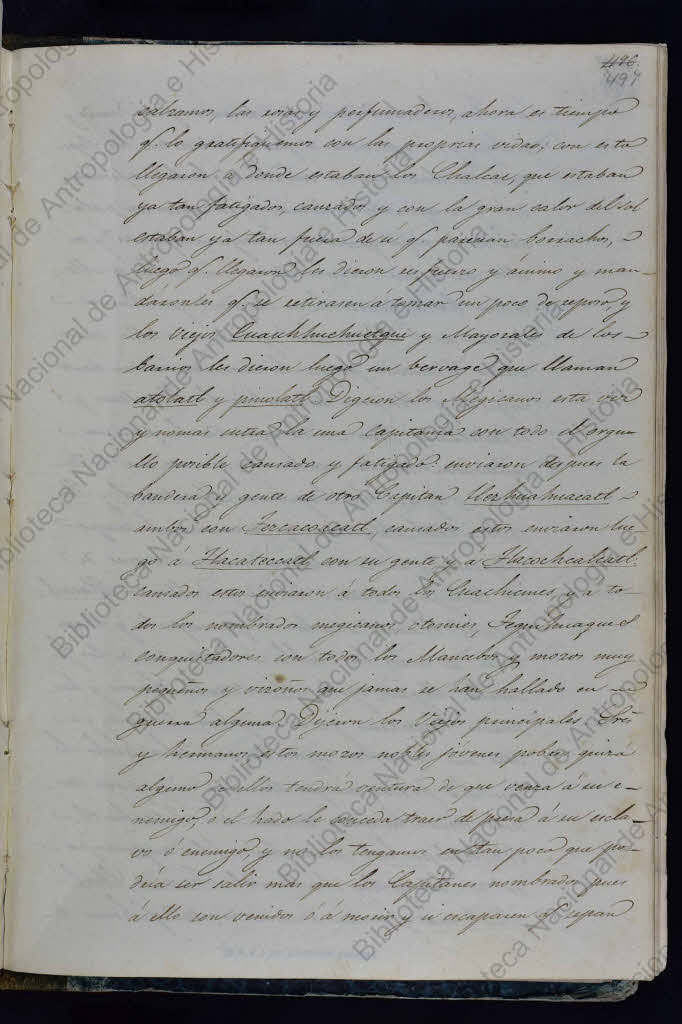 496
497
calzamos, las rosas y perfumaderos, ahora es tiempo
q.e lo gratifiquemos con las proprias vidas; con esto
llegaron a donde estaban los Chalcas, que estaban
ya tan fatigados, canzados y con la gran calor del sol
estaban ya tan fuera de sí q.e parecian borrachos,
luego q.e llegaron les dieron refuerzo y ánimo y man-
daronles q.e se retirasen a tomar un poco de reposo, y
los viejos Cuauhhuehuetque y Mayorales de los
barrios les dieron luego un bervage que llaman
atolatl y pinolatl Digeron los Megicanos esta vez
y nomas entra la una Capitania con todo el orgu-
llo posible cansado y fatigado enviaron despues la
bandera y gente de otro Capitan
ambos con cansados estos enviaron lue-
go á Tlacateccatl con su gente y á Tlacochcalcatl:
cansados estos enviaron á todos los Cuachimes, y a to-
dos los nombrados megicanos otomies, Tequihuaques
conquistadores con todos los Mancebos y mozos muy
pequeños y vizoños que jamas se han hallado en
guerra alguna. Dijeron los Viejos principales Sres
y hermanos estos mozos nobles jovenes pobres quizá
alguno de ellos tendrá ventura de que venza á su e-
nemigo, o el hado le conceda traer de presa á su escla-
vo o enemigo, y no los tengamos en tan poco que po-
dría ser salir mas que los Capitanes nombrados pues
á ello son venidos ó á morir y si escaparen q.e sepan
Biblioteca Nacional de Antropología e Historia